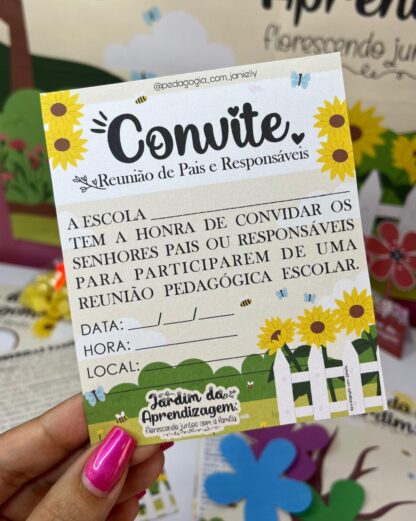 Aprendiz
florescendo juntos
@pedagogia_com_janiely
Convite
Reunião de Pais e Responsáveis
A ESCOLA
TEM A HONRA DE CONVIDAR OS
SENHORES PAIS OU RESPONSÁVEIS
PARA PARTICIPAREM DE UMA
REUNIÃO PEDAGÓGICA ESCOLAR.
DATA: ___/___/___
HORA:
LOCAL:
Jardim da
Aprendizagem:
florescendo juntos com a família